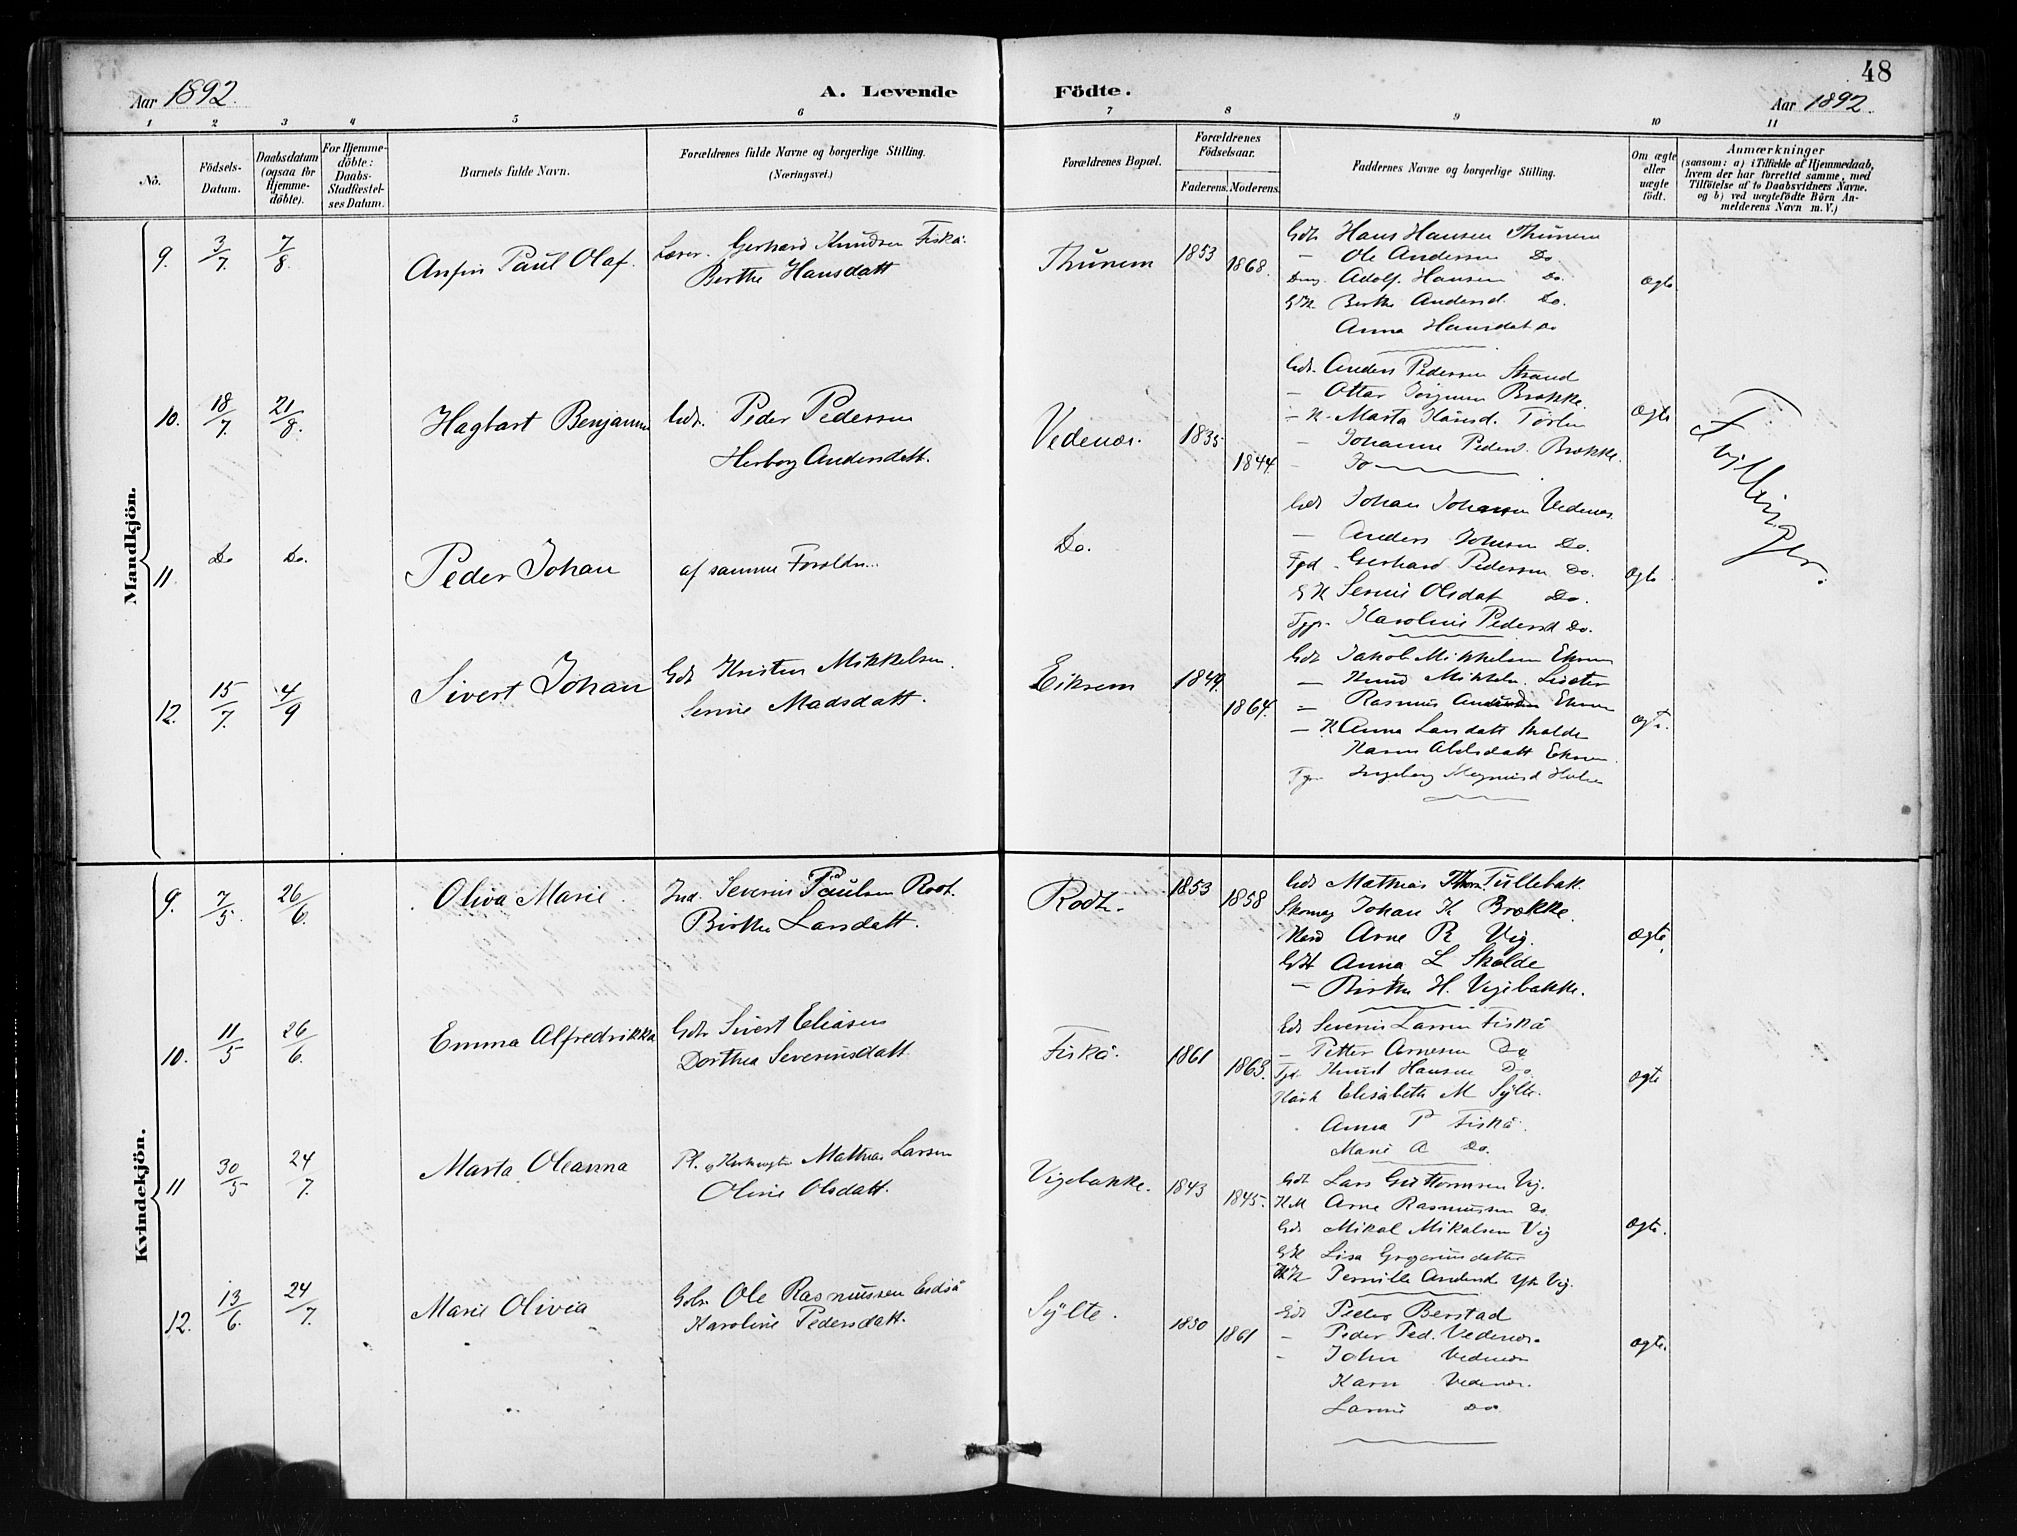 48
Aar 1892.
A. Levende
Födte.
Aar 1892.
1 2 3 4 5 6 7 8 9 10 11
No.
Födsels-Datum.
Daabsdatum (ogsaa for Hjemme-döbte).
For Hjemme-döbte: Daabs-Stadfæstel-ses Datum.
Barnets fulde Navn.
Forældrenes fulde Navne og borgerlige Stilling. (Næringsvei.)
Forældrenes Bopæl.
Forældrenes Födselsaar.
Faderens. Moderens.
Faddernes Navne og borgerlige Stilling.
Om ægte eller uægte födt.
Anmærkninger
(saasom: a) i Tilfælde af Hjemmedaab, hvem der har forrettet samme, med Tilföielse af to Daabsvidners Navne. og b) ved uægtefödte Börn An-melderens Navn m. V.)
Mandkjön.
9. 3/7. 7/8. Anfin Paul Olaf. Lærer. Gerhard Knudsen Fiskå.
Berthe Hansdatt
Thunem 1853 1868.
Gdr Hans Hansen Thunem
— Ole Andersen Do.
Adolf Hansen Do.
GK Berthe Andersd. Do.
Anna Hansdat Do
ægte
10. 18/7. 21/8. Hagbart Benjamin Gdr. Peder Pedersen
Herborg Andersdatt.
Vedenæs. 1835 1844.
Gdr. Anders Pedersen Strand
— Ottar Brække.
— K. Marta
— Johanne Pedersd. Brække.
ægte
Tvillinger.
11. Do Do. Peder Johan af samme Foreldre.
Do.
Gdr Johan Johansen Vedenæs.
— Anders Johnsen Do.
Gerhard Pedersen Do.
GK Serine Olsdat Do.
Karoline Pedersd Do.
ægte
12. 15/7. 4/9 Sivert Johan Gdr Kristen Mikkelsen.
Serine Madsdatt.
Eiksem 1864.
Gdr Jakob Mikkelsen
— Knud
— Rasmus
— K Anna Larsdatt Skolde
Karen Abelsdatt
Ingeborg
ægte.
Kvindekjön.
9. 7/5. 26/6. Oliva Marie. Ind. Severin Paulsen Rodt.
Birthe Larsdatt.
Rodt. 1853 1858
Gdr Mathias Tullebak.
Skomag Johan K Brække.
Arne R Vig.
Anna L Skolde
— Birthe H. Vigebakke.
ægte.
10. 11/5 26/6. Emma Alfredrikka Gdr Sivert Eliasen
Dorthea Severinsdatt.
Fiskå. 1861 1863.
Gdr Severin Larsen Fiskå
— Petter Arnesen Do
Knut Hansen Do.
Elisabeth M Sylte.
Anna P Fiskå.
Marie A Do.
ægte
11 30/5 24/7. Marta Oleanna Pl. Mathias Larsen
Oline Olsdatt.
Vigebakke. 1843 1845.
Gdr Lars Guttormsen Vig.
Arne Rasmussen Do.
Gdr Mikal Mikalsen Vig
GK Lisa
Pernille Vig.
ægte.
12. 13/6. 24/7. Marie Olivia Ole Rasmussen
Karoline Pedersdatt.
Sylte. 1861
Gdr Peder Berstad
— Peder Ped. Vedenæs.
— John Vedenæs
Karn Vedenæs.
Do
ægte.